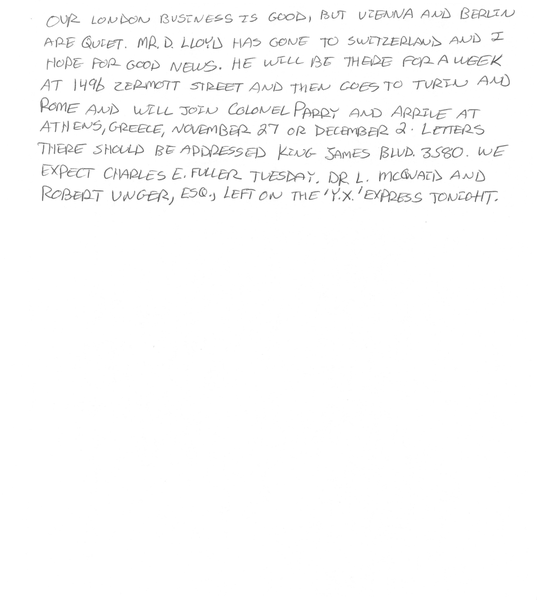 OUR LONDON BUSINESS IS GOOD, BUT VIENNA AND BERLIN
ARE QUIET. MR. D. LLOYD HAS GONE TO SWITZERLAND AND I
HOPE FOR GOOD NEWS. HE WILL BE THERE FOR A WEEK
AT 1496 ZERMOTT STREET AND THEN GOES TO TURIN AND
ROME AND WILL JOIN COLONEL PARRY AND ARRIVE AT
ATHENS, GREECE, NOVEMBER 27 OR DECEMBER 2. LETTERS
THERE SHOULD BE ADDRESSED KING JAMES BLVD. 3580. WE
EXPECT CHARLES E. FULLER TUESDAY. DR. L. MCQUAID AND
ROBERT UNGER, ESQ., LEFT ON THE 'Y.X.' EXPRESS TONIGHT.